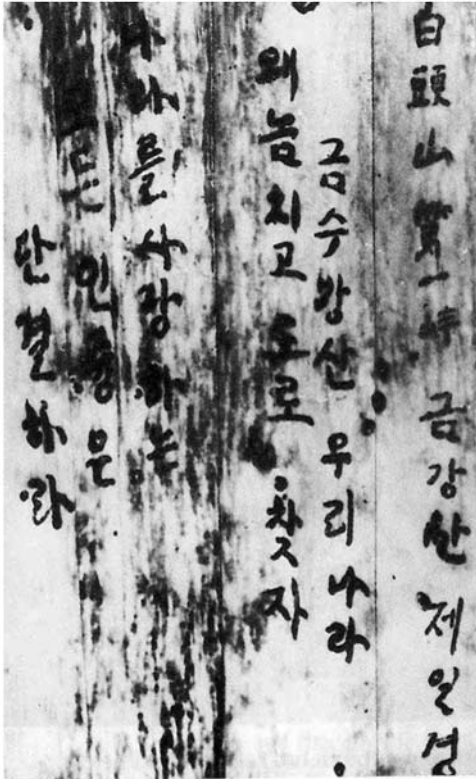 白頭山第一峰 금강산 제일경
금수강산 우리나라
왜놈치고 도로 찻자
나라를 사랑하는
모든
단결하라